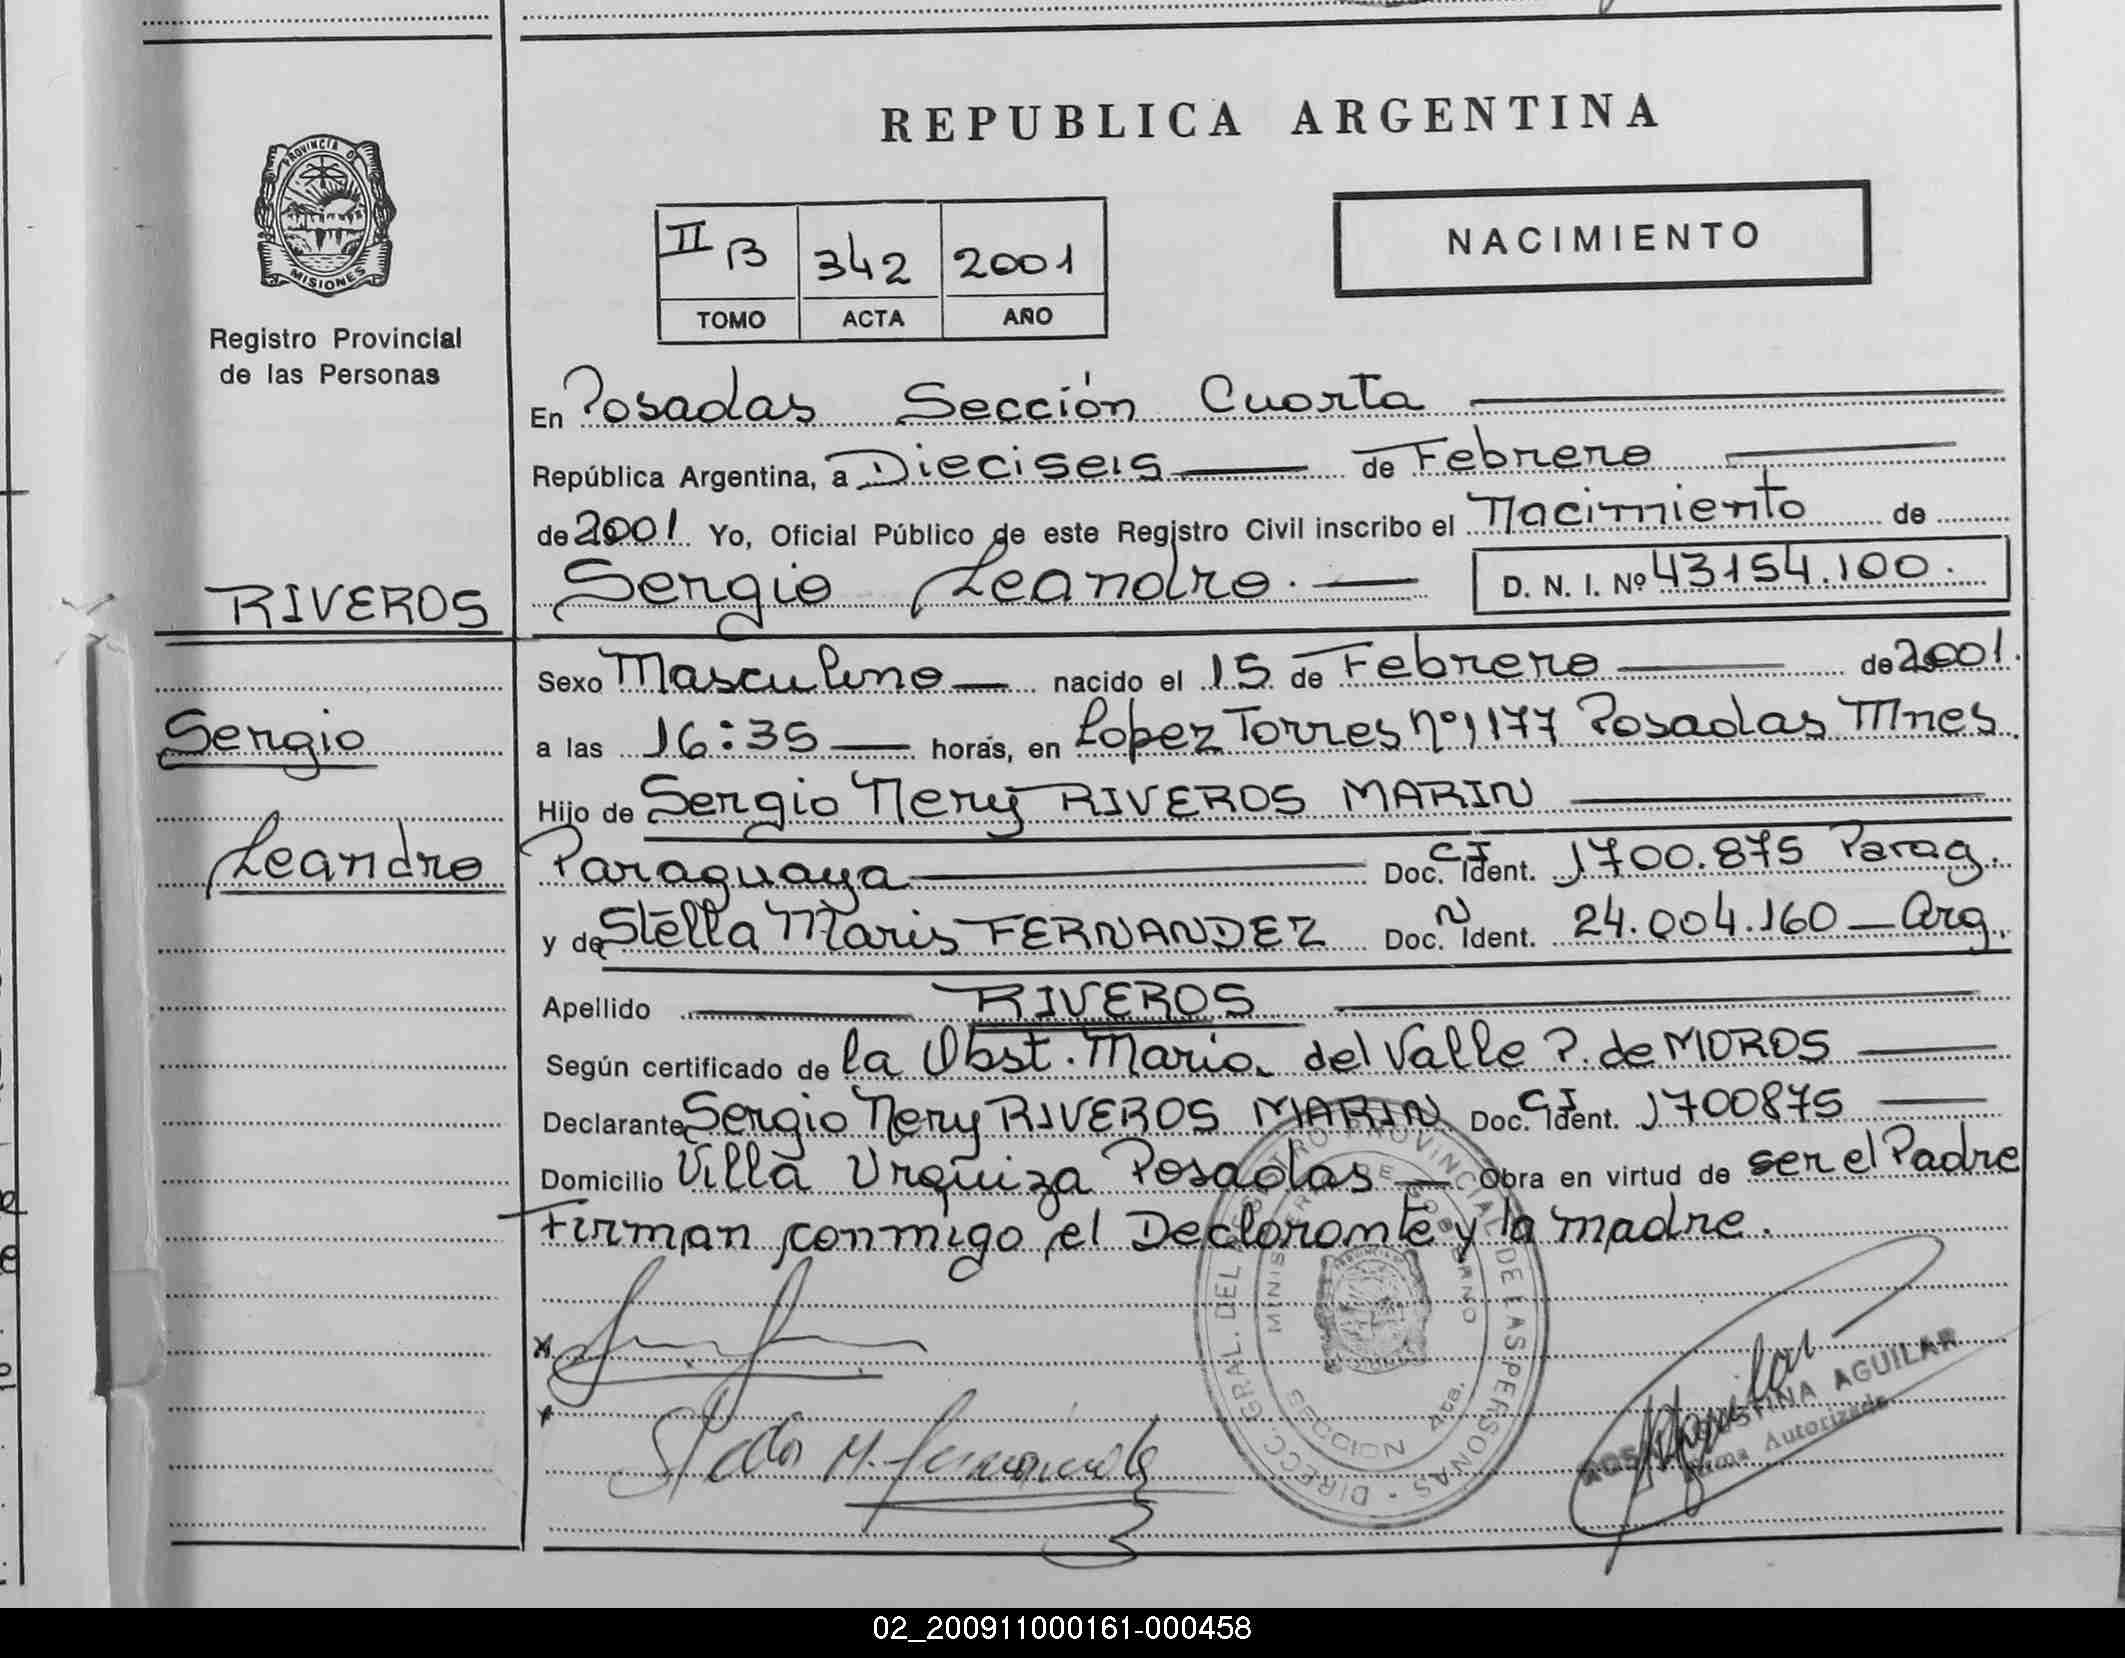 REPUBLICA ARGENTINA
PROVINCIA DE
MISIONES
Registro Provincial
de las Personas
II B 342 2001
TOMO ACTA AÑO
NACIMIENTO
En Posadas Sección Cuarta
República Argentina, a Dieciseis de Febrero
de 2001 Yo, Oficial Público de este Registro Civil inscribo el Nacimiento de
RIVEROS
Sergio Leandro.
D. N. I. Nº 43154.100.
Sexo Masculino nacido el 15 de Febrero de 2001.
Sergio
a las 16:35 horas, en Lopez Torres nº 1177 Posadas Mnes.
Hijo de Sergio Nery RIVEROS MARIN
Leandro
Paraguaya Doc. CI Ident. 1700.875 Parag.
y de Stella Maris FERNANDEZ Doc. N Ident. 24.004.160 — Arg.
Apellido RIVEROS
Según certificado de la Obst. Maria del Valle P. de MOROS
Declarante Sergio Nery RIVEROS MARIN Doc. CI Ident. 1700875
Domicilio Villa Urquiza Posadas — Obra en virtud de ser el Padre
Firman conmigo el Declarante y la madre.
DIRECC. GRAL. DEL REGISTRO PROVINCIAL DE LAS PERSONAS
MINISTERIO DE GOBIERNO
Stella M. Fernández
Aguilar
AGUSTINA AGUILAR
Firma Autorizada
02_200911000161-000458